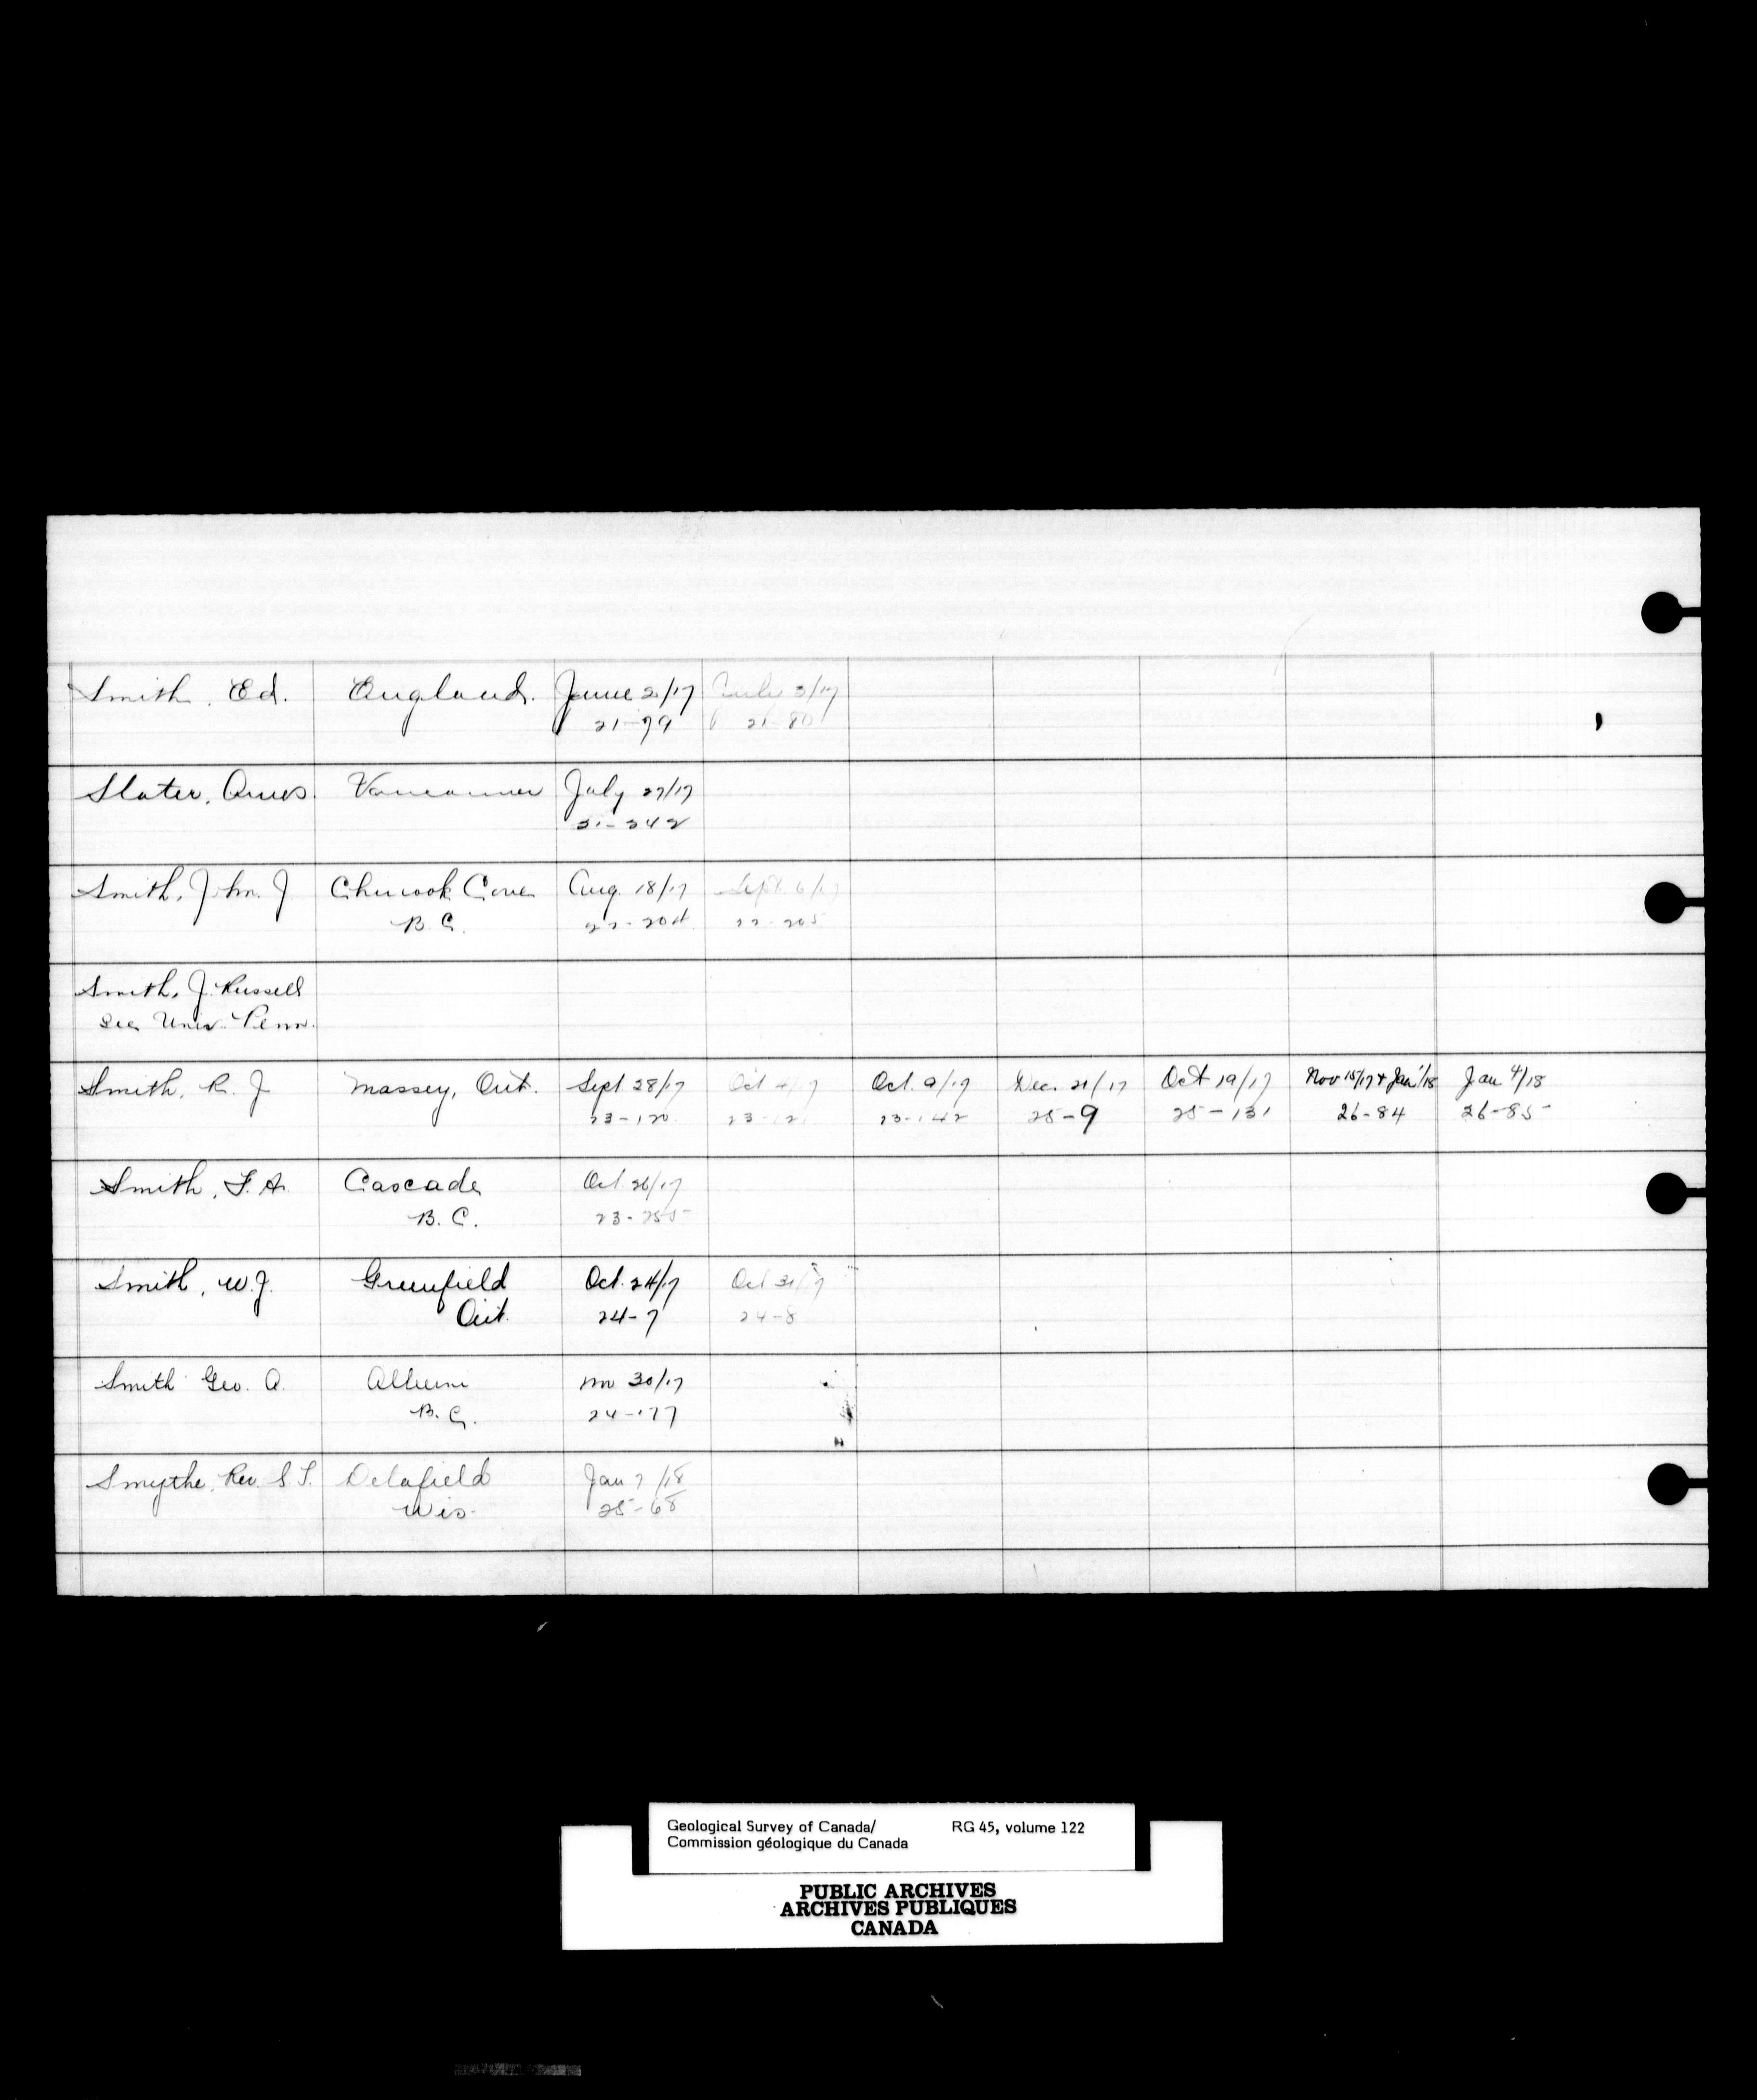 Smith, Ed. England. June 2/17 July 3/17
21-79 21-80
Slater, Amos. Vancouver July 27/17
21-242
Smith, John. J Chinook Cove Aug. 18/17 Sept. 6/17
B.C. 22-204 22-205
Smith, J. Russell
see Univ. Penn.
Smith, R. J Massey, Ont. Sept 28/17 Oct /17 Oct. 9/17 Dec. 21/17 Oct 19/17 Nov 15/17 & Jan 1/18 Jan 4/18
23-120 23-121 23-142 25-9 25-131 26-84 26-85
Smith, F. A. Cascade Oct 26/17
B.C. 23-255
Smith, W.J. Greenfield Oct. 24/17 Oct 31/17
Ont. 24-7 24-8
Smith Geo. A. Alberni Nov 30/17
B.C. 24-177
Smythe, Rev. S. T. Delafield Jan 7/18
Wis. 25-68
Geological Survey of Canada/ RG 45, volume 122
Commission géologique du Canada
PUBLIC ARCHIVES
ARCHIVES PUBLIQUES
CANADA